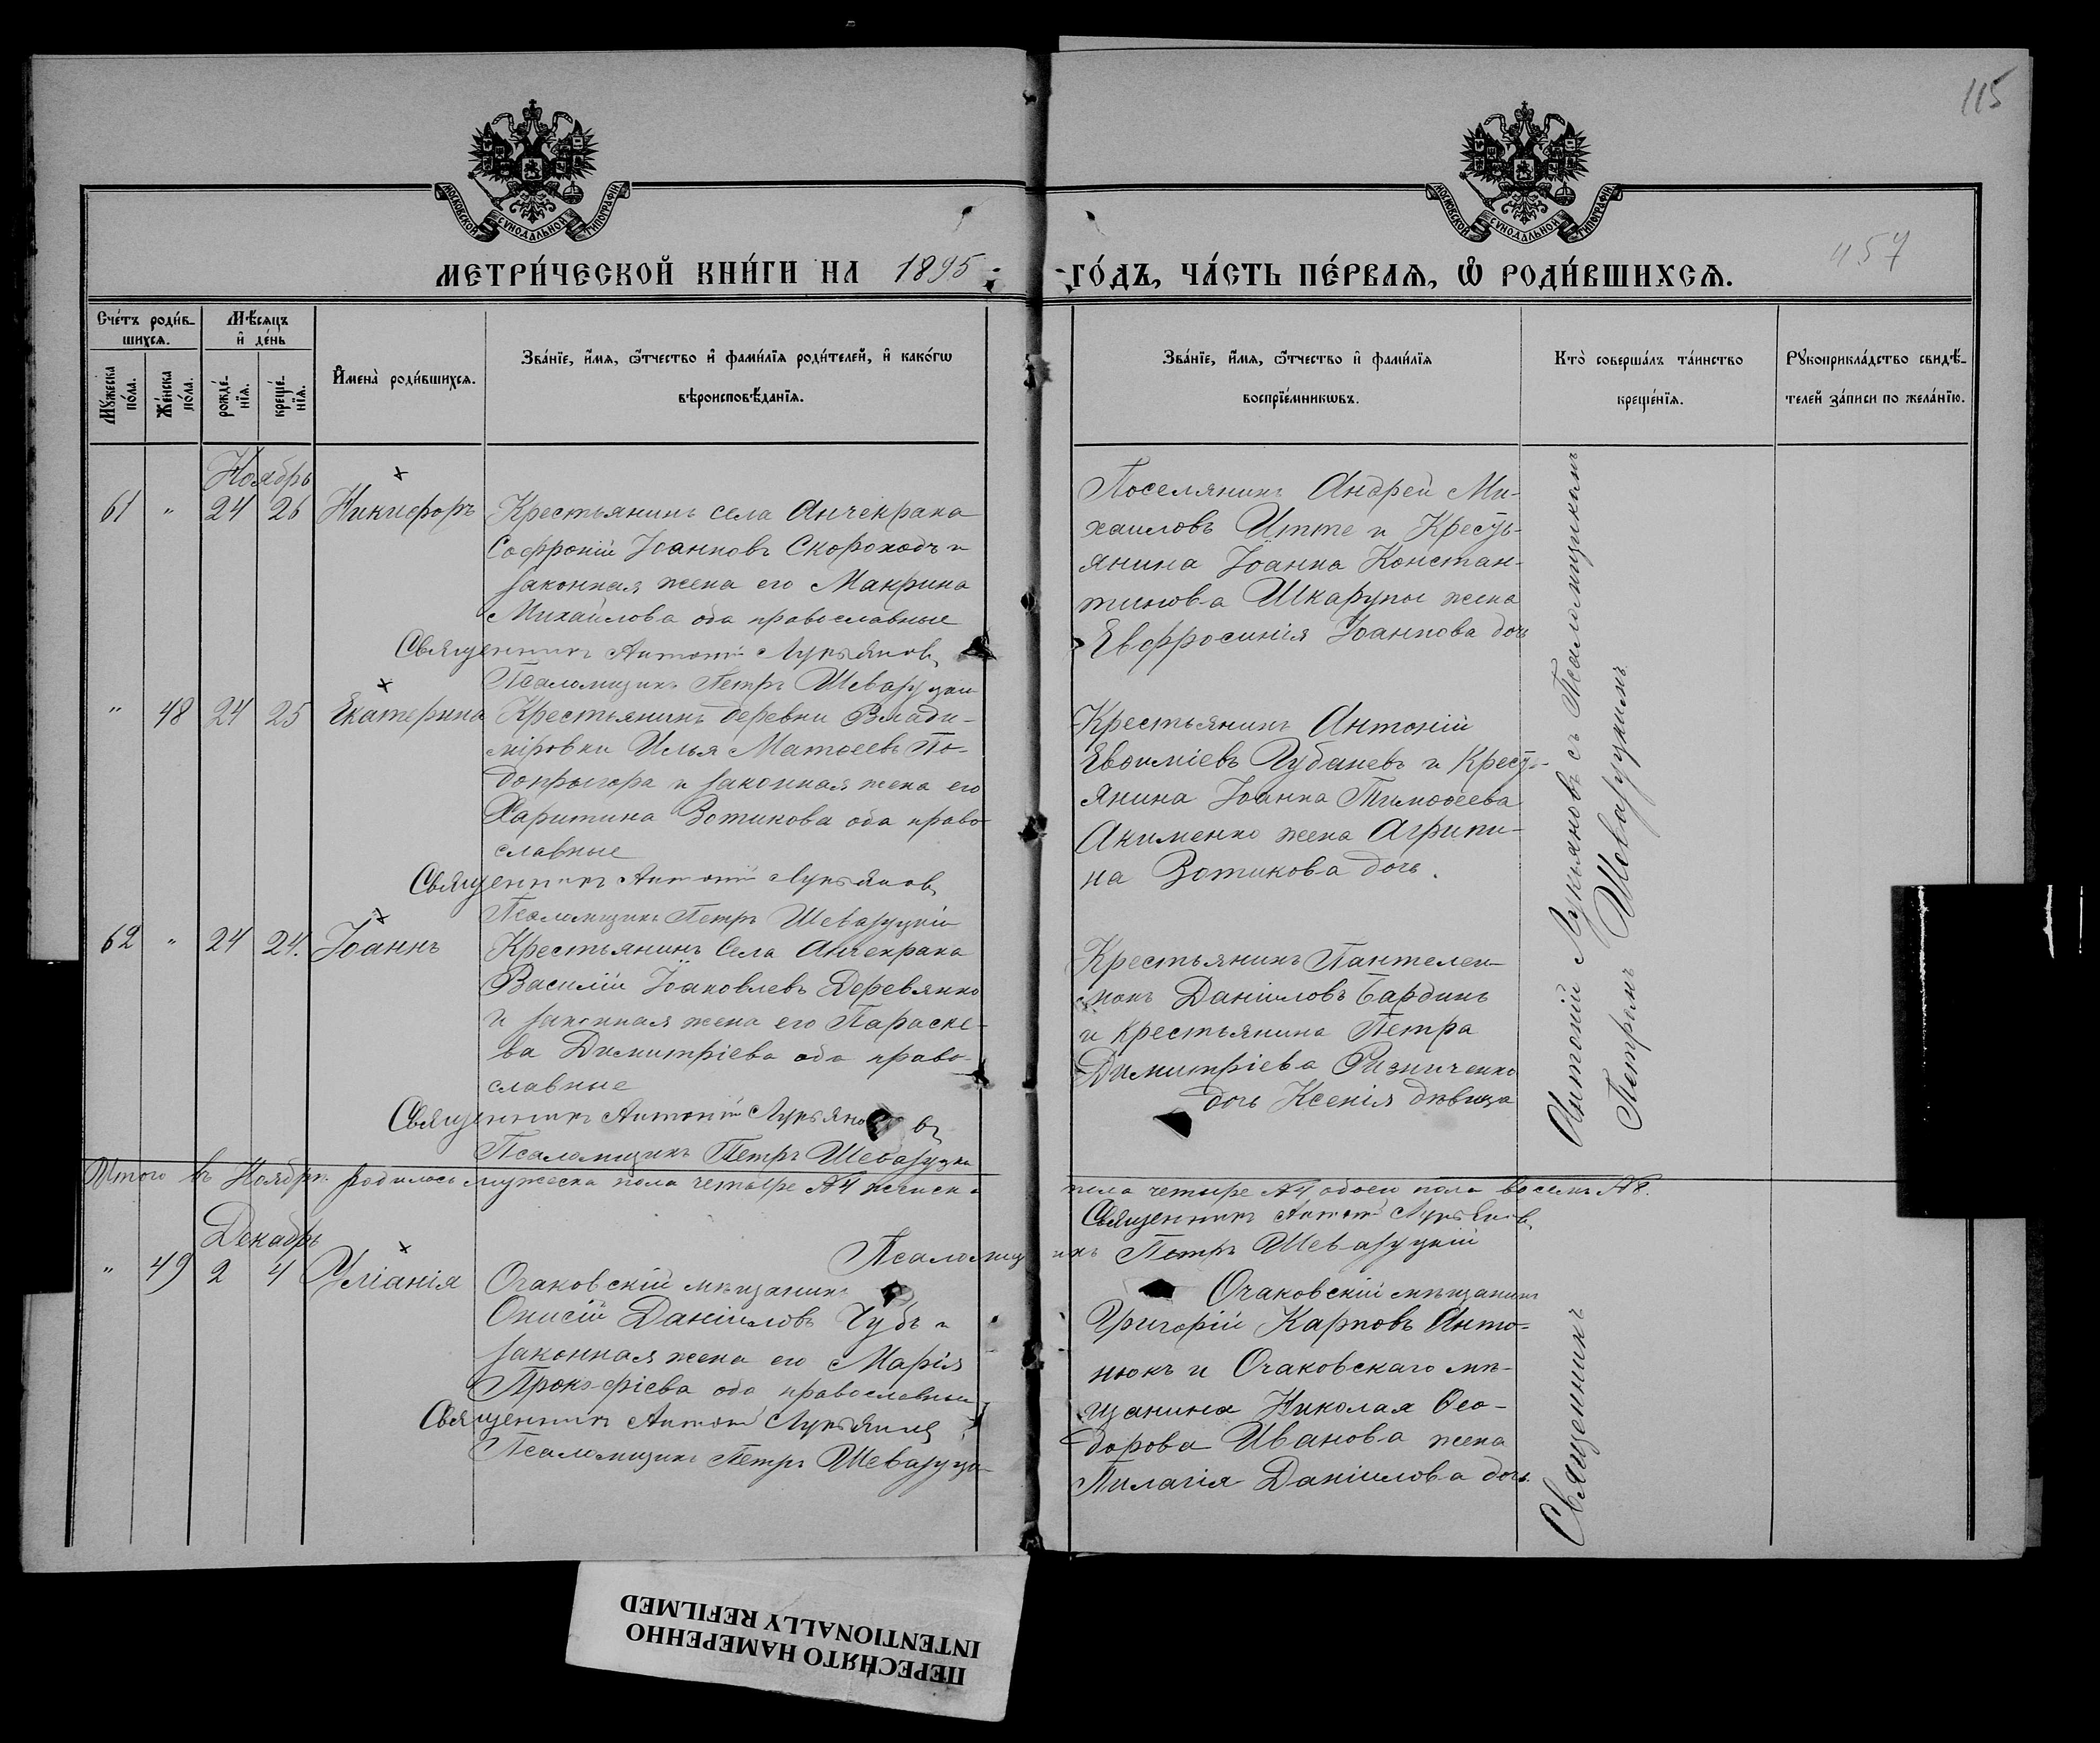 115
МОСКОВСКОЙ СѴНОДАЛЬНОЙ ТИПОГРАФІИ
МОСКОВСКОЙ СѴНОДАЛЬНОЙ ТИПОГРАФІИ
457
МЕТРИ́ЧЕСКОЙ КНИ́ГИ НА 1895
ГО́ДЪ, ЧА́СТЬ ПЕ́РВАѦ, Ѡ҆ РОДИ́ВШИХСѦ.
Сче́тъ роди́в-
шихсѧ.
Мѣ́сяцъ
и҆ де́нь
Му́жеска
по́ла.
Же́нска
по́ла.
рожде́-
нїѧ.
креще́-
нїѧ.
И҆мена̀ роди́вшихсѧ.
Зва́нїе, и҆́мѧ, ѻ҆́тчество и҆ фами́лїѧ роди́телей, и҆ како́гѡ
вѣроисповѣ́данїѧ.
Зва́нїе, и҆́мѧ, ѻ҆́тчество и҆ фами́лїѧ
воспрїе́мникѡвъ.
Кто̀ соверша́лъ та́инство
креще́нїѧ.
Рꙋкоприкла́дство свидѣ́-
телей за́писи по жела́нїю.
Ноябрь
61 " 24 26 Никифоръ
Крестьянинъ села Анчекрака
Софроній Іоанновъ Скороходъ и
законная жена его Макрина
Михайлова оба православные
Священникъ Антоній Лукьяновъ
Псаломщикъ Петръ Шеваруцкій
Поселянинъ Андрей Ми-
хаиловъ Итте и Кресть-
янина Іоанна Констан-
тинова Шкарупы жена
Евфросинія Іоаннова дочь
" 48 24 25 Екатерина
Крестьянинъ деревни Влади-
міровки Илья Матѳеевъ По-
допрыгора и законная жена его
Харитина Зотикова оба право-
славные
Священникъ Антоній Лукьяновъ
Псаломщикъ Петръ Шеваруцкій
Крестьянинъ Антоній
Евѳиміевъ Губаневъ и Кресть-
янина Іоанна Тимоѳеева
Акименко жена Агрипи-
на Зотикова дочь.
62 " 24 24. Іоаннъ
Крестьянинъ Села Анчекрака
Василій Іаковлевъ Деревянко
и законная жена его Параске-
ва Димитріева оба право-
славные
Священникъ Антоній Лукьяновъ
Псаломщикъ Петръ Шеваруцкій
Крестьянинъ Пантелеи-
монъ Даніиловъ Бардинъ
и крестьянина Петра
Димитріева Ризниченко
дочь Ксенія дѣвица
Итого въ Ноябрѣ родилось мужеска пола четыре №4 женска пола четыре №4 обоего пола восемь №8.
Священникъ Антоній Лукьяновъ
Псаломщикъ Петръ Шеваруцкій
Декабрь
" 49 2 4 Уліанія
Очаковскій мѣщанинъ
Онисій Даніиловъ Чубъ и
законная жена его Марія
Прокофіева оба православные
Священникъ Антоній Лукьяновъ
Псаломщикъ Петръ Шеваруцкій
Очаковскій мѣщанинъ
Григорій Карповъ Анто-
нюкъ и Очаковскаго мѣ-
щанина Николая Ѳео-
дорова Иванова жена
Пилагія Даніилова дочь
Священникъ Антоній Лукьяновъ съ Псаломщикомъ
Петромъ Шеваруцкимъ
ПЕРЕСНЯТО НАМЕРЕННО
INTENTIONALLY REFILMED